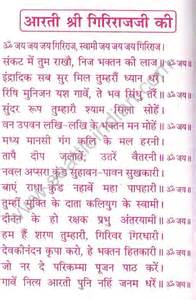 आरती श्री गिरिराजजी की
ॐ जय जय जय गिरिराज, स्वामी जय जय जय गिरिराज।
संकट में तुम राखौ, निज भक्तन की लाज॥ ॐ जय॥
इंद्रादिक सब सुर मिल तुम्हरौं ध्यान धरैं।
रिषि मुनिजन यश गावें, ते भव सिंधु तरैं॥ ॐ जय॥
सुंदर रूप तुम्हारौ श्याम सिला सोहें।
वन उपवन लखि-लखि के भक्तन मन मोहें॥ ॐ जय॥
मध्य मानसी गंग कलि के मल हरनी।
तापै दीप जलावें, उतरें वैतरनी॥ ॐ जय॥
नवल अप्सरा कुंड सुहावन-पावन सुखकारी।
बाएं राधा कुंड नहावें महा पापहारी॥ ॐ जय॥
तुम्ही मुक्ति के दाता कलियुग के स्वामी।
दीनन के हो रक्षक प्रभु अंतरयामी॥ ॐ जय॥
हम हैं शरण तुम्हारी, गिरिवर गिरधारी।
देवकीनंदन कृपा करो, हे भक्तन हितकारी॥ ॐ जय॥
जो नर दे परिकम्मा पूजन पाठ करें।
गावें नित्य आरती पुनि नहिं जनम धरें॥ ॐ जय॥